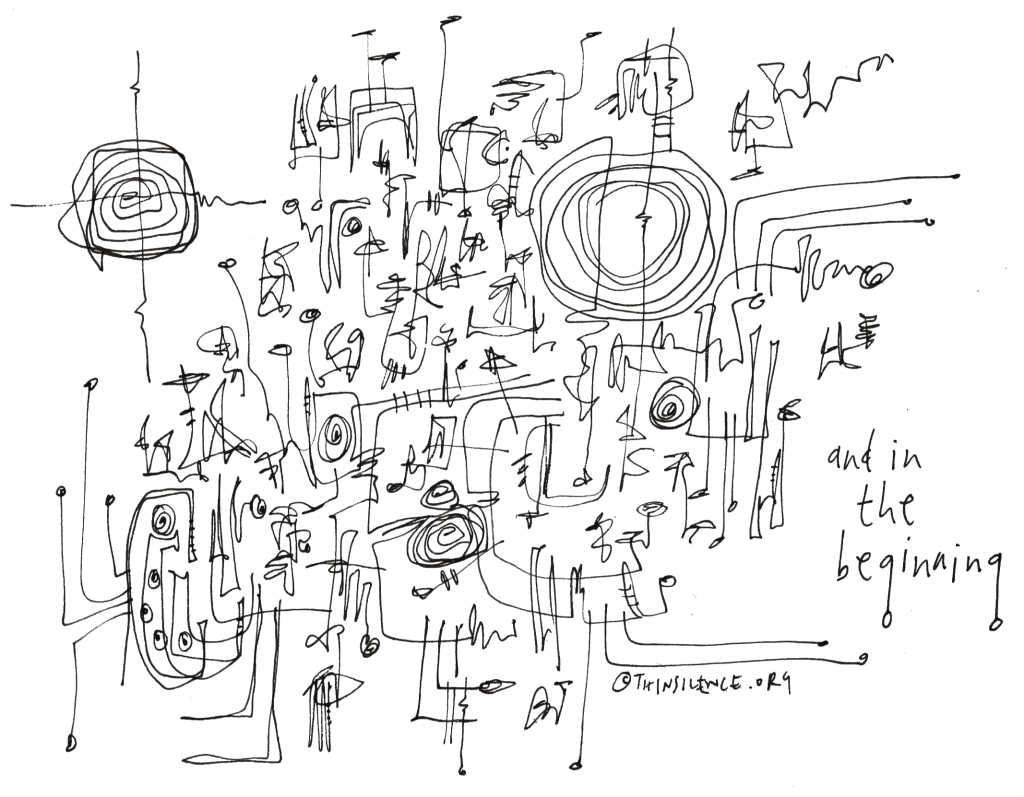 and in
the
beginning
©THINSILENCE.ORG